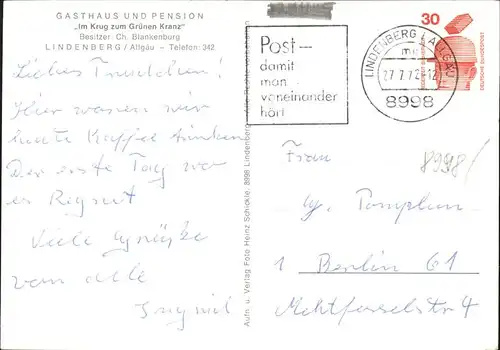 GASTHAUS UND PENSION
„Im Krug zum Grünen Kranz"
Besitzer: Ch. Blankenburg
LINDENBERG / Allgäu - Telefon: 342
Liebes Trudchen!
Hier waren wir
heute Kaffee trinken
Der erste Tag wo
es Regnet
Viele Grüße
von alle
Aufn. u. Verlag Foto Heinz Schickle, 8998 Lindenberg
Post-
damit
man
voneinander
hört
LINDENBERG (ALLGÄU)
27.7.72
8998
30
DEUTSCHE BUNDESPOST
8998/
Frau
1 Berlin 61
4